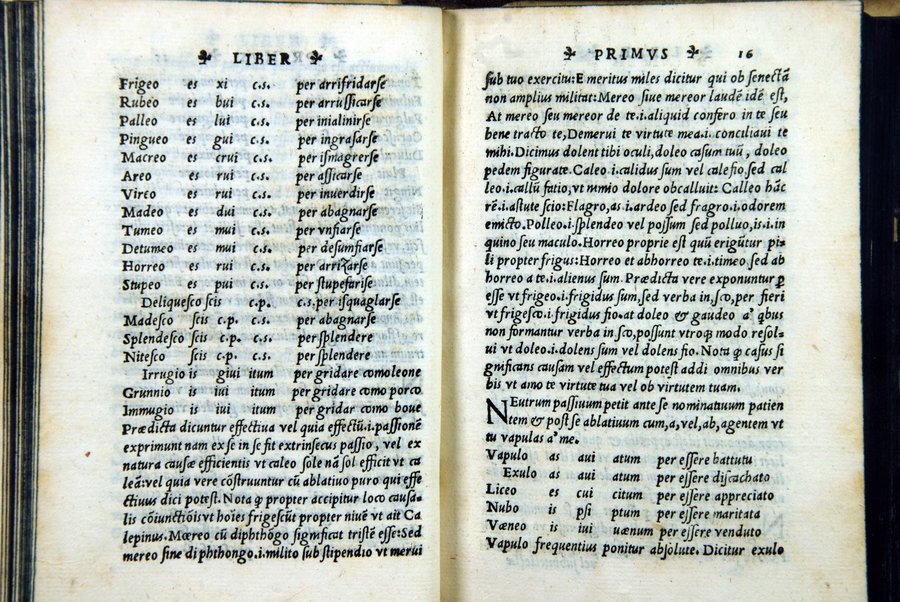 LIBER
Frigeo es xi c.s. per arrifridarse
Rubeo es bui c.s. per arrussicarse
Palleo es lui c.s. per inialinirse
Pingueo es gui c.s. per ingrasarse
Macreo es crui c.s. per ismagrerse
Areo es rui c.s. per assicarse
Vireo es rui c.s. per inuerdirse
Madeo es dui c.s. per abagnarse
Tumeo es mui c.s. per vnfiarse
Detumeo es mui c.s. per desumfiarse
Horreo es rui c.s. per arrizarse
Stupeo es pui c.s. per stupefarise
Deliquesco scis c.p. c.s. per isquaglarse
Madesco scis c.p. c.s. per abagnarse
Splendesco scis c.p. c.s. per splendere
Nitesco scis c.p. c.s. per splendere
Irrugio is giui itum per gridare como leone
Grunnio is iui itum per gridare como porco
Immugio is iui itum per gridar como boue
Prædicta dicuntur effectiua vel quia effectū.i.passionē
exprimunt nam ex se in se fit extrinsecus passio, vel ex
natura causæ efficientis vt caleo sole nā sol efficit vt ca
leā:vel quia vere cōstruuntur cū ablatiuo puro qui effe
ctiuus dici potest. Nota ꝙ propter accipitur loco causa-
lis cōiunctiōis vt hoīes frigescūt propter niuē vt ait Ca
lepinus. Mœreo cū diphthōgo significat tristē esse:Sed
mereo sine diphthongo.i.milito sub stipendio vt merui
PRIMVS 16
sub tuo exercitu:Emeritus miles dicitur qui ob senectā
non amplius militat:Mereo siue mereor laudē idē est,
At mereo seu mereor de te.i.aliquid confero in te seu
bene tracto te,Demerui te virtute mea.i. conciliaui te
mihi.Dicimus dolent tibi oculi,doleo casum tuū, doleo
pedem figurate. Caleo.i.calidus sum vel calefio,sed cal
leo.i.callū fatio,vt nimio dolore obcalluit: Calleo hāc
rē.i.astute scio:Flagro,as.i.ardeo sed fragro.i.odorem
emicto.Polleo.i.splendeo vel possum sed polluo,is.i.in
quino seu maculo.Horreo proprie est quū erigūtur pi-
li propter frigus:Horreo et abhorreo te.i.timeo sed ab
horreo a te.i.alienus sum. Prædicta vere exponuntur ꝑ
esse vt frigeo.i.frigidus sum,sed verba in,sco,per fieri
vt frigesco.i.frigidus fio.at doleo & gaudeo a' qbus
non formantur verba in,sco,possunt vtroqꝫ modo resol-
ui vt doleo.i.dolens sum vel dolens fio. Nota ꝙ casus si
gnificans causam vel effectum potest addi omnibus ver
bis vt amo te virtute tua vel ob virtutem tuam.
NEutrum passiuum petit ante se nominatiuum patien
tem & post se ablatiuum cum,a,vel,ab,agentem vt
tu vapulas a' me.
Vapulo as aui atum per essere battutu
Exulo as aui atum per essere discachato
Liceo es cui citum per essere appreciato
Nubo is psi ptum per essere maritata
Væneo is iui uænum per essere venduto
Vapulo frequentius ponitur absolute. Dicitur exulo